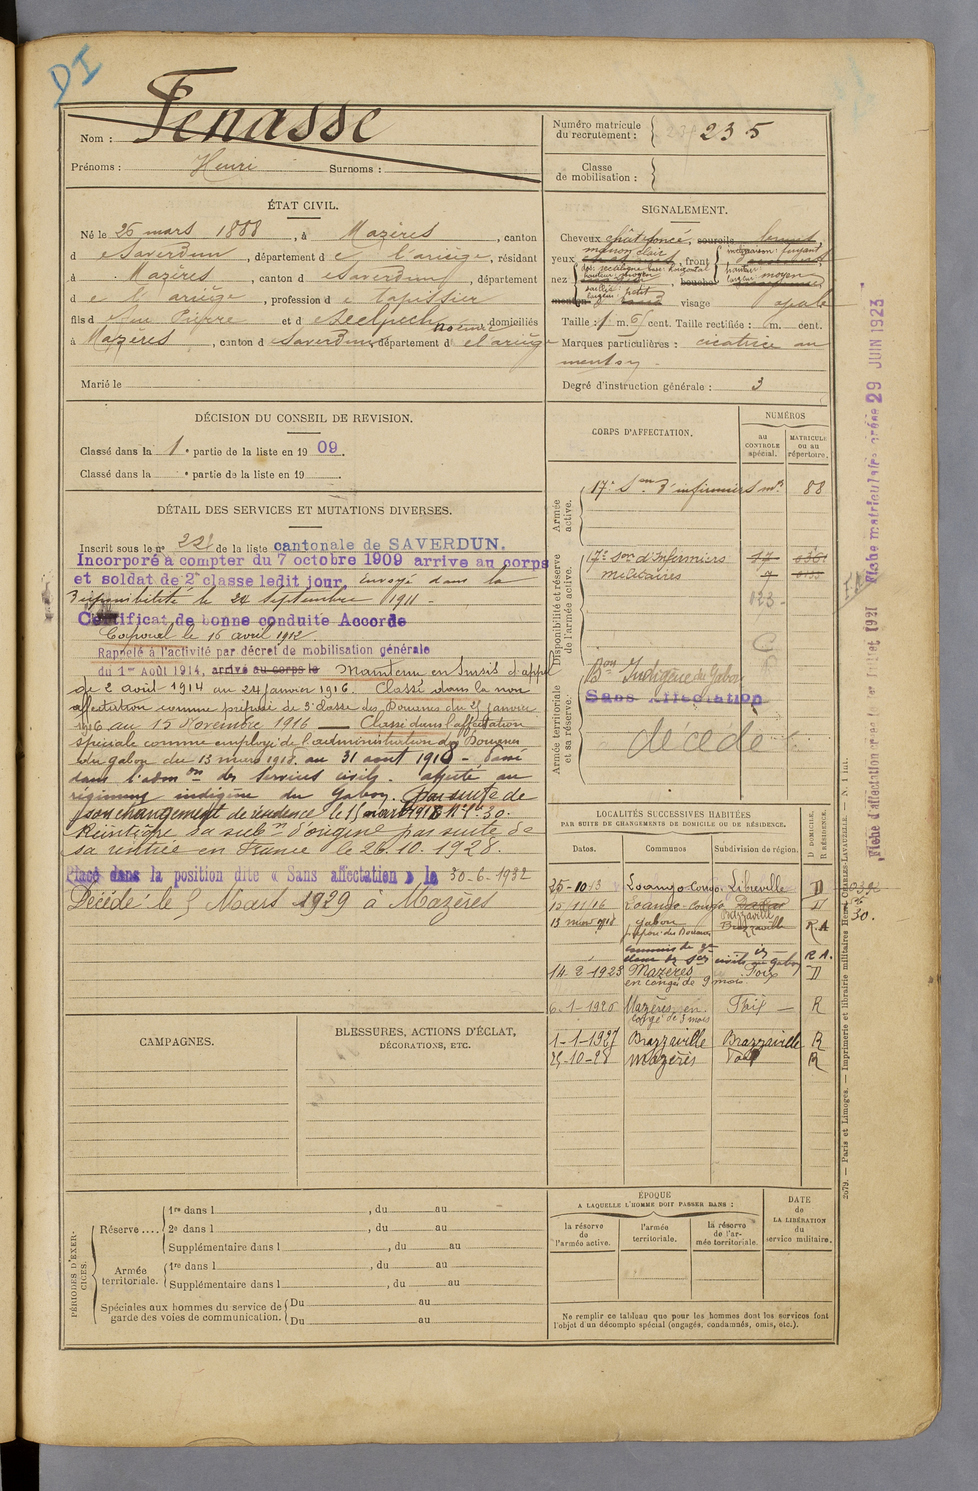 DI
Nom : Fenasse
Prénoms : Henri Surnoms :
Numéro matricule du recrutement : 235
Classe de mobilisation :
ÉTAT CIVIL.
Né le 26 mars 1888, à Mazères, canton
d e Saverdun, département d e l'ariège, résidant
à Mazères, canton d e Saverdun, département
d e l'ariège, profession d e tapissier
fils d e feu Pierre et d e domiciliés
à Mazères, canton d e Saverdun, département d e l'ariège
Marié le
SIGNALEMENT.
Cheveux chât. foncé, sourcils
yeux marron clair, front
nez bouche moyen
menton visage ovale
Taille : 1 m. 61 cent. Taille rectifiée : m. cent.
Marques particulières : cicatrice au
menton.
Degré d'instruction générale : 3
DÉCISION DU CONSEIL DE REVISION.
Classé dans la 1e partie de la liste en 1909.
Classé dans la e partie de la liste en 19
CORPS D'AFFECTATION.
NUMÉROS
au contrôle spécial.
matricule ou répertoire.
Armée active.
17e Son d'infirmiers mres 88
Disponibilité et réserve de l'armée active.
17e Son d'Infirmiers
militaires
Armée territoriale et sa réserve.
Bon Indigène du Gabon
Sans Affectation
décédé
DÉTAIL DES SERVICES ET MUTATIONS DIVERSES.
Inscrit sous le n° de la liste cantonale de SAVERDUN.
Incorporé à compter du 7 octobre 1909 arrivé au corps
et soldat de 2e classe ledit jour, envoyé dans la
disponibilité le 24 septembre 1911 -
Certificat de bonne conduite Accordé
Caporal le 16 avril 1912
Rappelé à l'activité par décret de mobilisation générale
du 1er Août 1914, arrivé au corps le Maintenu en sursis d'appel
de 2 août 1914 au 24 janvier 1916. Classé dans la non
affectation comme préposé de 3e classe des Douanes du 25 janvier
1916 au 15 Novembre 1916 — Classé dans l'affectation
spéciale comme employé de l'administration des Douanes
du gabon du 13 mars 1918 au 31 aout 1918 - Passé
dans l'admon des services civils. affecté au
régiment indigène du Gabon. Par suite de
son changement de résidence le 15 mars 1918
Réintègre sa subon d'origine par suite de
sa rentrée en France le 26.10.1928.
Placé dans la position dite « Sans affectation » le 30-6-1932
Décédé le 5 Mars 1929 à Mazères
LOCALITÉS SUCCESSIVES HABITÉES
PAR SUITE DE CHANGEMENTS DE DOMICILE OU DE RÉSIDENCE.
Dates. Communes Subdivision de région. D DOMICILE, R RÉSIDENCE.
25-10-13 Loango Congo Libreville D
15 11 16 Loango-Congo Brazzaville D
13 mars 1918 gabon Brazzaville R.A
préposé des Douanes
R A.
14 2 1923 Mazères Foix D
en congé de 9 mois
6-1-1926 Mazères en Foix — R
congé de 3 mois
1-1-1927 Brazzaville Brazzaville R
25-10-28 Mazères Foix R
CAMPAGNES.
BLESSURES, ACTIONS D'ÉCLAT,
DÉCORATIONS, ETC.
PÉRIODES D'EXERCICES.
Réserve....
1re dans l , du au
2e dans l , du au
Supplémentaire dans l , du au
Armée territoriale.
1re dans l , du au
Supplémentaire dans l , du au
Spéciales aux hommes du service de garde des voies de communication.
Du au
Du au
ÉPOQUE
A LAQUELLE L'HOMME DOIT PASSER DANS :
la réserve de l'armée active.
l'armée territoriale.
la réserve de l'armée territoriale.
DATE de LA LIBÉRATION du service militaire.
Ne remplir ce tableau que pour les hommes dont les services font
l'objet d'un décompte spécial (engagés, condamnés, omis, etc.).
Fiche matriculaire créée 29 JUIN 1923
Fiche d'affectation créée le 1er Juillet 1921
2079. — Paris et Limoges. — Imprimerie et librairie militaires Henri CHARLES-LAVAUZELLE. — N. 1 int.